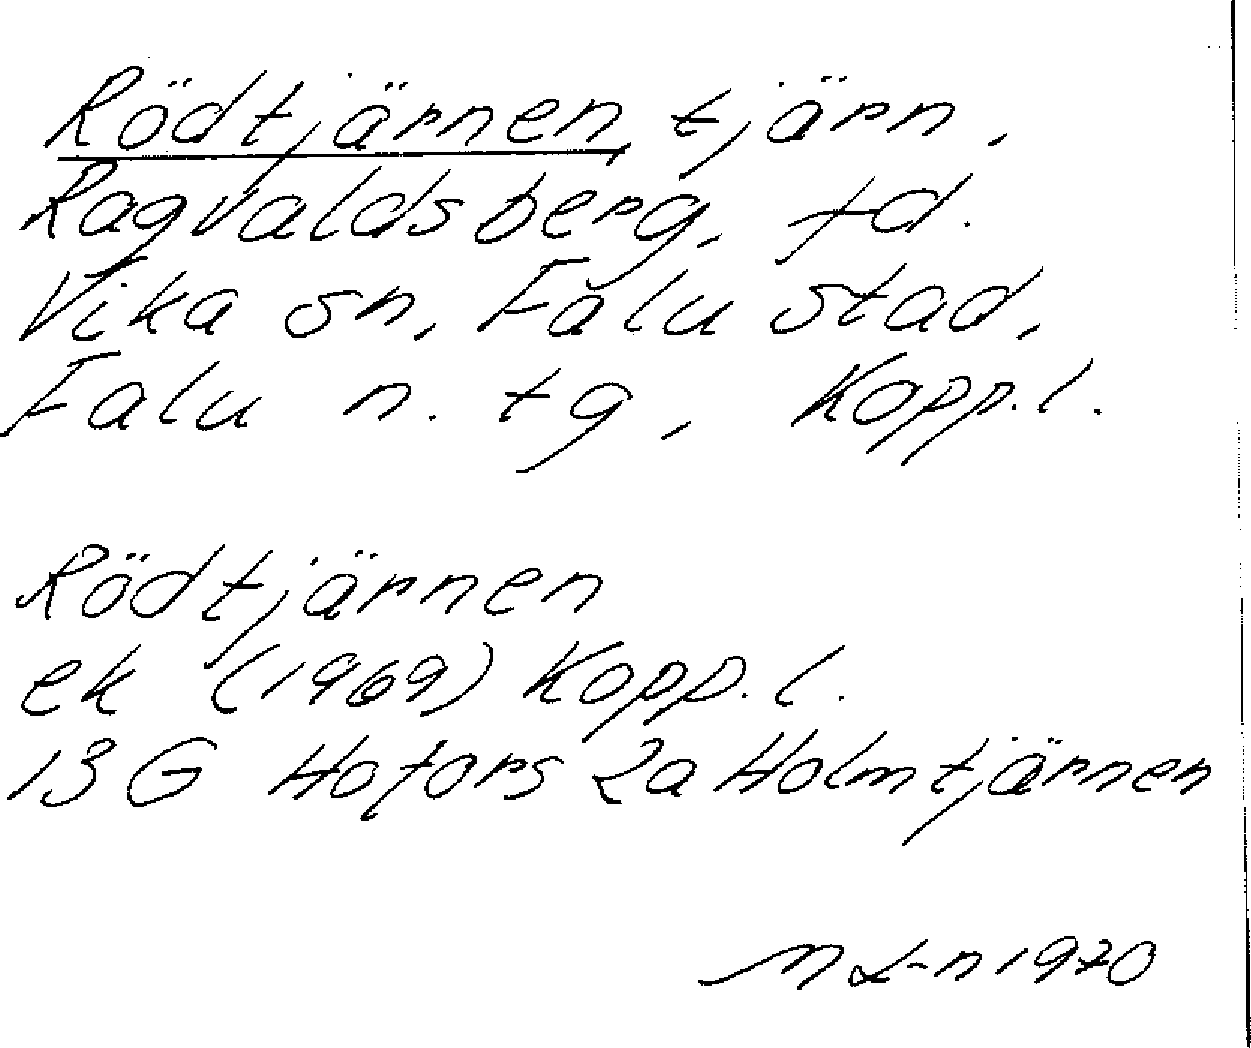 Rödtjärnen, tjärn,
Ragvaldsberg, fd.
Vika sn, Falu stad,
Falu n. tg, Kopp.l.
Rödtjärnen
ek (1969) Kopp.l.
13G Hofors 2a Holmtjärnen
M L-n 1970